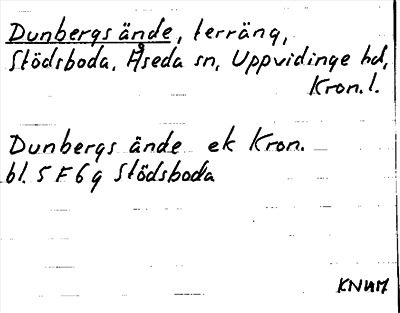 Dunbergs ände, terräng,
Stödsboda, Åseda sn, Uppvidinge hd,
Kron. l.
Dunbergs ände ek Kron.
bl. 5 F 6 g Stödsboda
KNUM